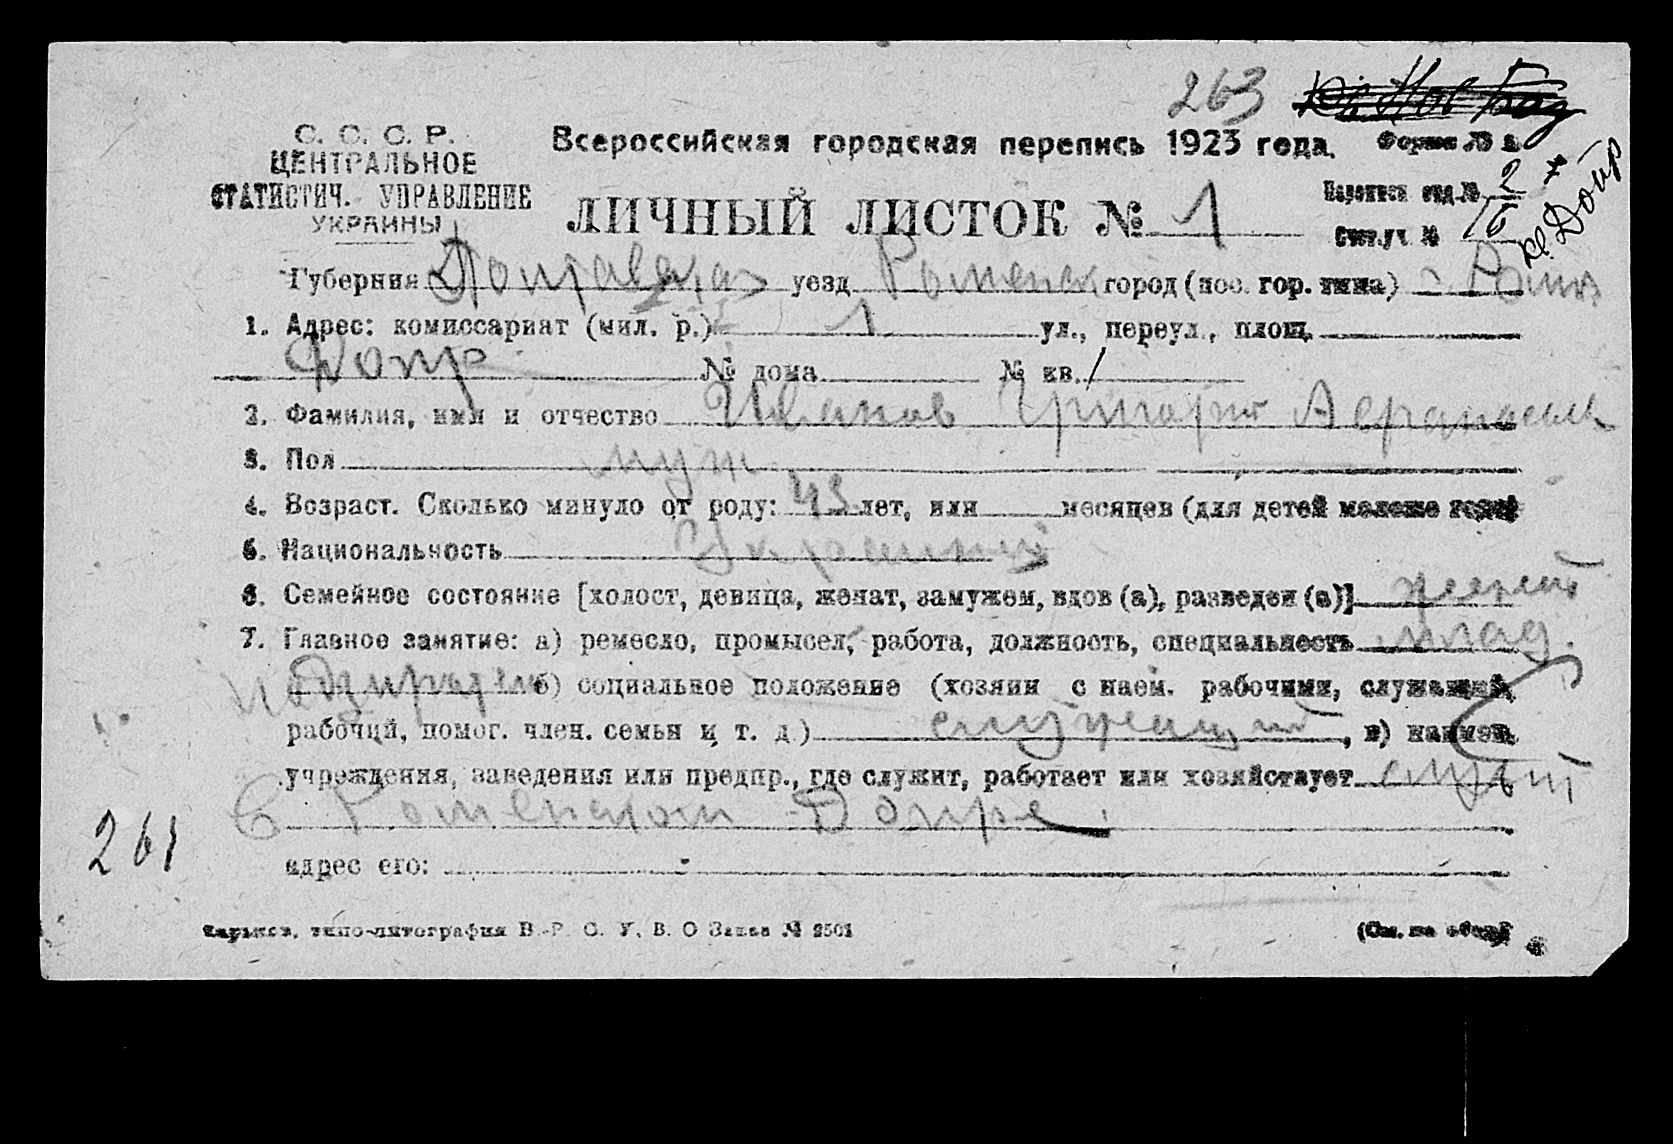 263 кв. Нов
С. С. С. Р.
ЦЕНТРАЛЬНОЕ
СТАТИСТИЧ. УПРАВЛЕНИЕ
УКРАИНЫ
Всероссийская городская перепись 1923 года.
Форма №
ЛИЧНЫЙ ЛИСТОК № 1
Переписн отд. № 2
Счет. уч № 16
кв. Допр
Губерния Полтавская уезд Роменск город (пос. гор. типа) г. Ромны
1. Адрес: комиссариат (мил. р.) 1 ул., переул., площ.
Допр № дома № кв. 1
2. Фамилия, имя и отчество Иванов Григорий Афанасьев
3. Пол муж
4. Возраст. Сколько минуло от роду: 43 лет, или месяцев (для детей моложе года)
5. Национальность Украинец
6. Семейное состояние [холост, девица, женат, замужем, вдов (а), разведен (а)] женат
7. Главное занятие: а) ремесло, промысел, работа, должность, специальность млад.
надзиратель б) социальное положение (хозяин с наем. рабочими, служащий,
рабочий, помог. член. семьи и т. д.) служащий, в) наимен.
учреждения, заведения или предпр., где служит, работает или хозяйствует служит
в Роменском Допре
261
адрес его:
Харьков, типо-литография В.-Р. С. У. В. О Заказ № 2501
(См. на обор.)